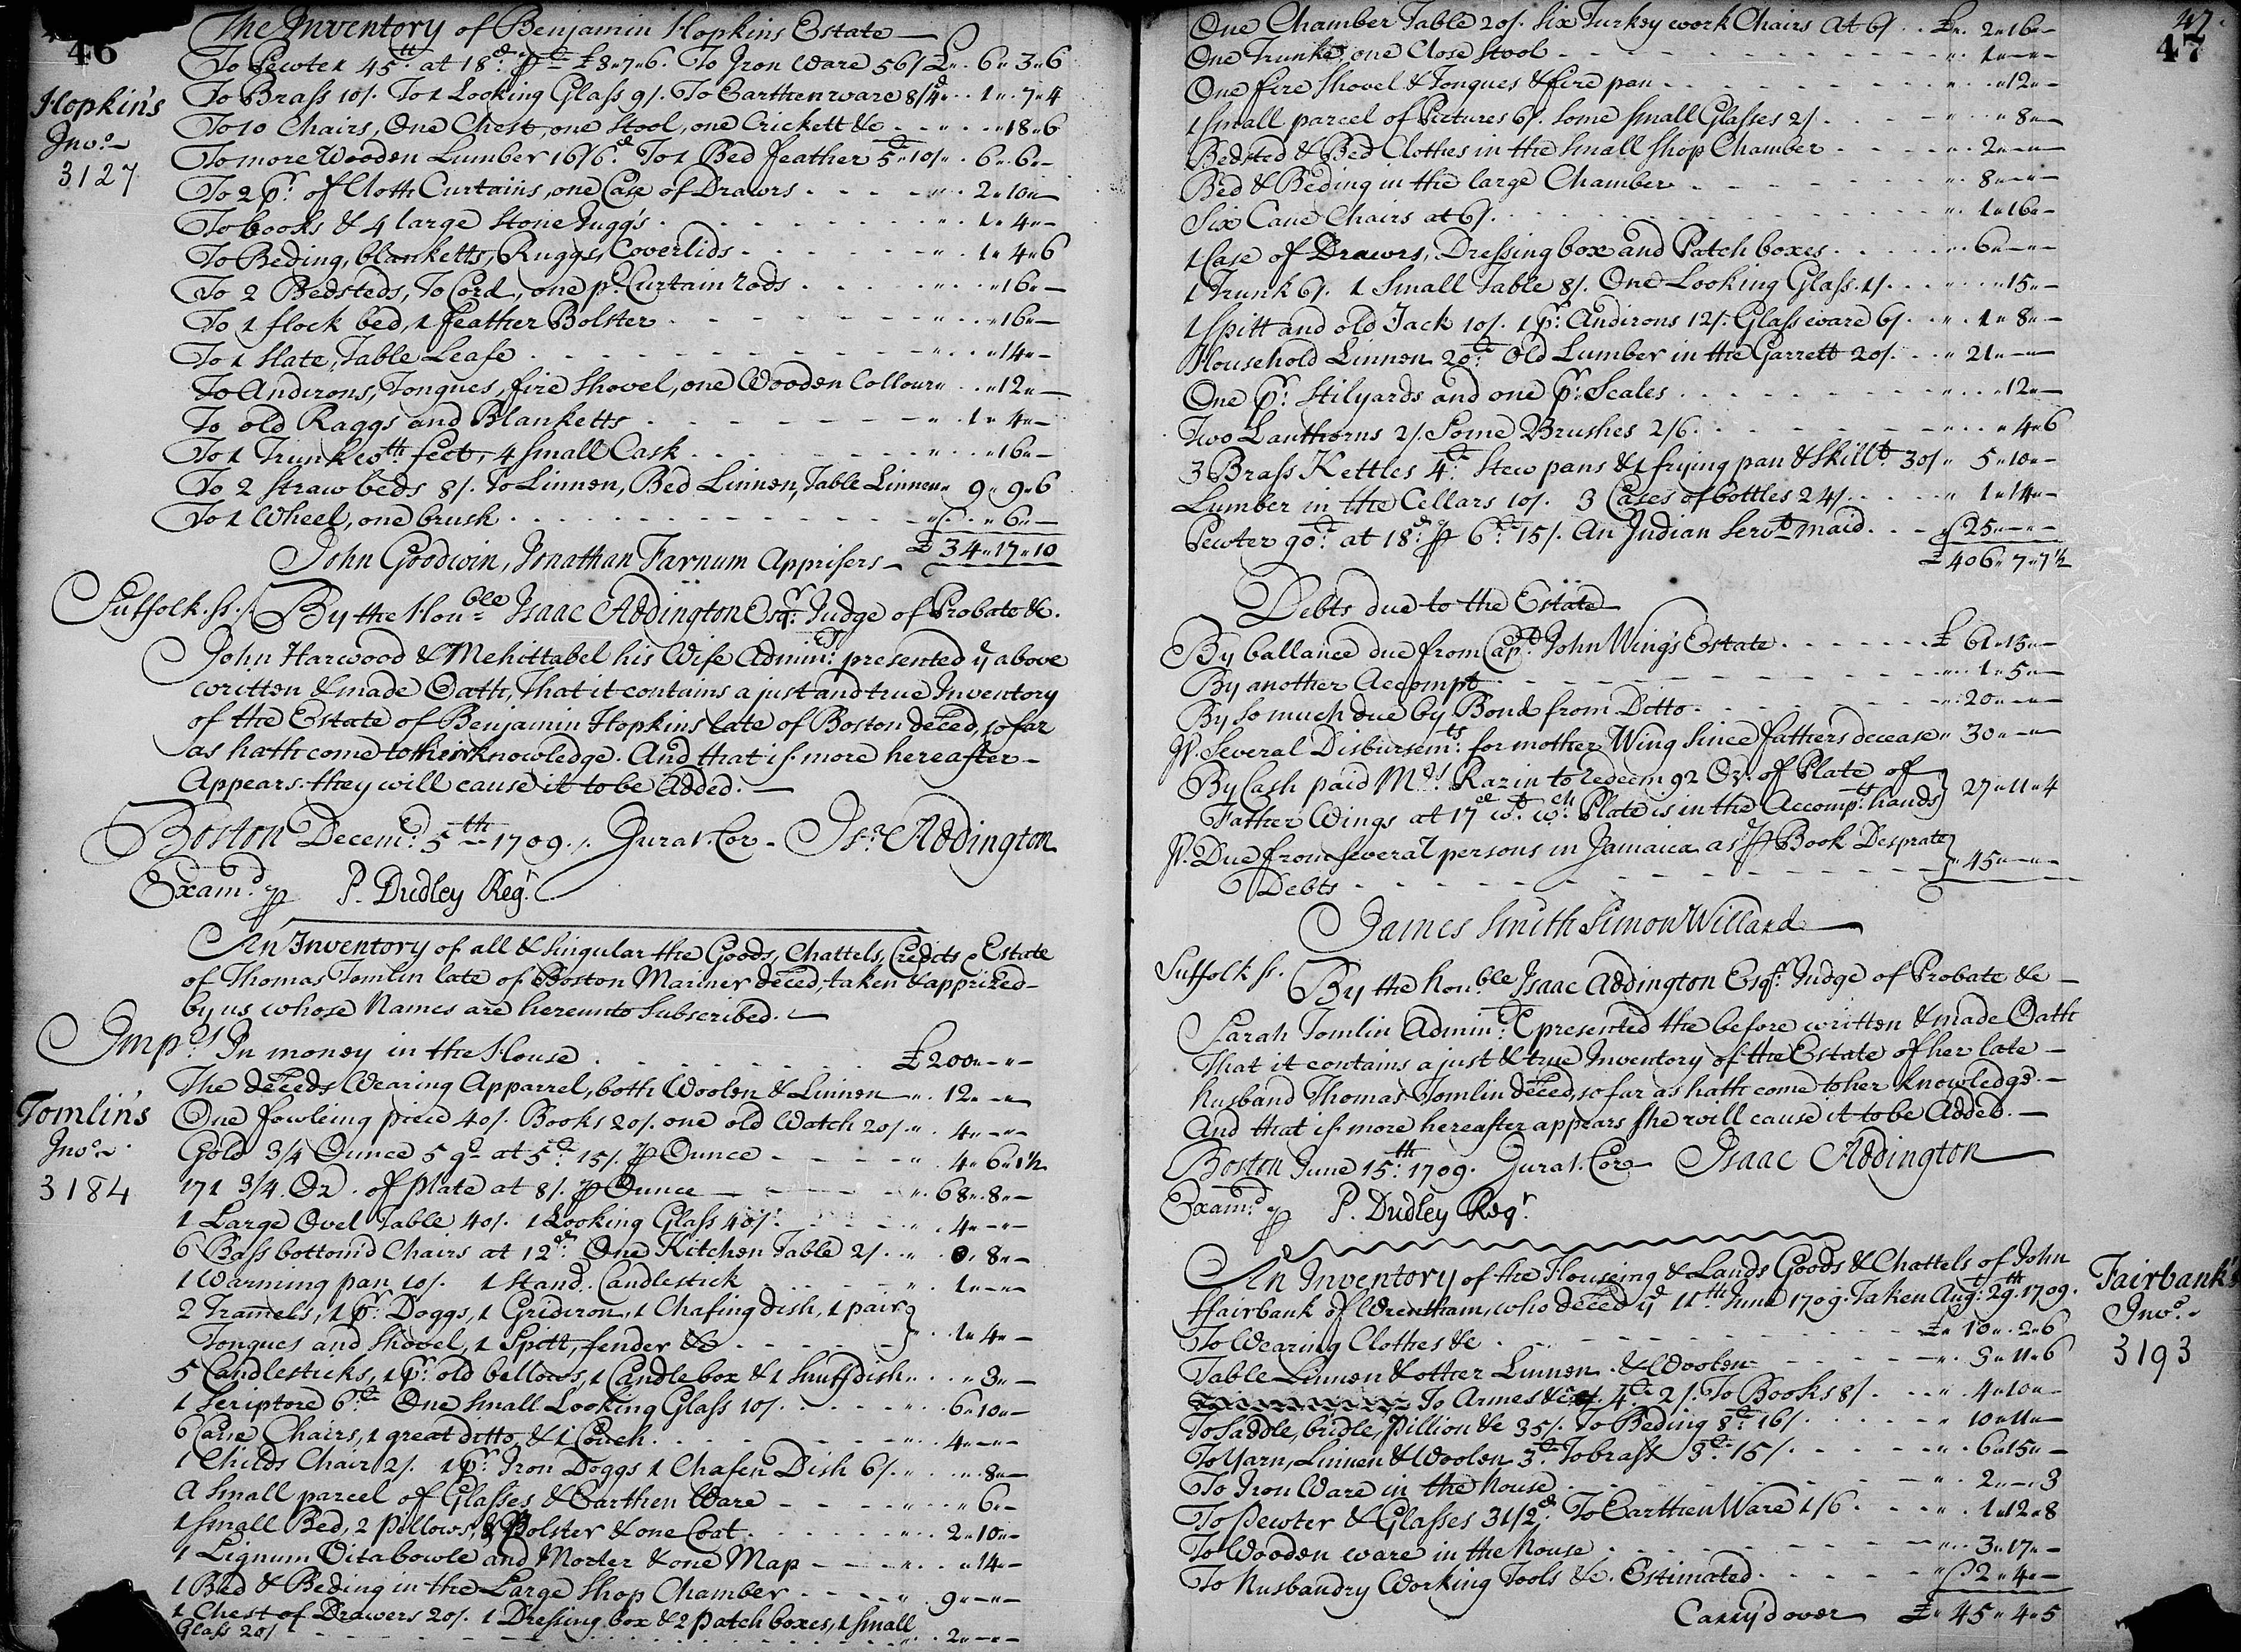 46
The Inventory of Benjamin Hopkins Estate
To Pewter 45tt at 18d p £3"7"6. To Iron Ware 56/ £" 6" 3"6
Hopkin's
Inv.o
3127
To Brass 10/. To 1 Looking Glass 9/. To Earthenware 8/4d " 1" 7"4
To 10 Chairs, One Chest, one Stool, one Crickett &c " " 18"6
To more Wooden Lumber 16/6d To 1 Bed feather 5£"10/ " 6" 6"-
To 2 pr of Cloth Curtains, one Case of Drawrs " 2"10"-
To books & 4 large Stone Jugg's " 1" 4"-
To Beding, blanketts, Ruggs, Coverlids " 1" 4"6
To 2 Bedsteds, To Cord, one pr Curtain rods " " 16"-
To 1 flock bed, 1 feather Bolster " " 16"-
To 1 Slate, Table Leafe " " 14"-
To Andirons, Tongues, fire Shovel, one Wooden Collour " " 12"-
To old Raggs and Blanketts " 1" 4"-
To 1 Trunk wth feet, 4 small Cask " " 16"-
To 2 Straw beds 8/. To Linnen, Bed Linnen, Table Linnen " 9" 9"6
To 1 Wheel, one brush " " 6"-
John Goodwin, Jonathan Farnum Apprisers £ 34"17"10
Suffolk. ss. By the Honble Isaac Addington Esqr Judge of Probate &c.
John Harwood & Mehittabel his Wife Adminrs presented ye above
written & made Oath, That it contains a just and true Inventory
of the Estate of Benjamin Hopkins late of Boston deced, so far
as hath come to their knowledge. And that if more hereafter
Appears they will cause it to be Added.
Boston Decemr 5th 1709. Jurat. Cor. Isa Addington
Examd p P. Dudley Regr
An Inventory of all & singular the Goods, Chattels, Credits & Estate
of Thomas Tomlin late of Boston Mariner deced, taken & apprized
by us whose Names are hereunto Subscribed.
Imprs In money in the House £200"-"-
The deceds Wearing Apparrel, both Woolen & Linnen " 12"-"-
Tomlin's
Inv.o
3184
One fowleing piece 40/. Books 20/. one old Watch 20/ " 4"-"-
Gold 3/4 Ounce 5 gs at 5£ 15/. p Ounce " 4" 6"1½
171 3/4. Oz. of plate at 8/. p Ounce " 68" 8"-
1 Large Ovel Table 40/. 1 Looking Glass 40/. " 4"-"-
6 Bass bottomd Chairs at 12d. One Kitchen Table 2/. " 0" 8"-
1 Warming pan 10/. 1 Stand. Candlestick " 1"-"-
2 Tramels, 1 pr Doggs, 1 Gridiron, 1 Chafing dish, 1 pair
Tongues and Shovel, 1 Spitt, fender &c } " 1" 4"-
5 Candlesticks, 1 pr old bellows, 1 Candlebox & 1 Snuffdish " " 3"-
1 Scriptore 6£ One small Looking Glass 10/. " 6"10"-
6 Cane Chairs, 1 great ditto, & 1 Couch " 4"-"-
1 Childs Chair 2/. 1 pr Iron Doggs 1 Chafen Dish 6/. " " 8"-
A small parcel of Glasses & Earthen Ware " " 6"-
1 small Bed, 2 pillows, & Bolster & one Coat " 2"10"-
1 Lignum Vita bowle and Morter & one Map " " 14"-
1 Bed & Beding in the Large Shop Chamber " 9"-"-
1 Chest of Drawers 20/. 1 Dressing box & 2 patch boxes, 1 small
Glass 20/ " 2"-"-
47
47
One Chamber Table 20/. Six Turkey work Chairs at 6/ £" 2"16"-
One Trunke, one Close stool " 1"-"-
One fire Shovel & Tongues & fire pan " " 12"-
1 small parcel of Pictures 6/. some small Glasses 2/. " " 8"-
Bedsted & Bed Clothes in the Small shop Chamber " 2"-"-
Bed & Beding in the large Chamber " 8"-"-
Six Cane Chairs at 6/. " 1"16"-
1 Case of Drawrs, Dressing box and Patch boxes " 6"-"-
1 Trunk 6/. 1 Small Table 8/. One Looking Glass 1/. " " 15"-
1 Spitt and old Jack 10/. 1 pr Andirons 12/. Glass ware 6/ " 1" 8"-
Household Linnen 20£ Old Lumber in the Garrett 20/. " 21"-"-
One pr Stilyards and one pr Scales " " 12"-
Two Lanthorns 2/. Some Brushes 2/6 " " 4"6
3 Brass Kettles 4£ Stew pans & 1 frying pan & Skillt 30/ " 5"10"-
Lumber in the Cellars 10/. 3 Cases of bottles 24/. " 1"14"-
Pewter 90tt at 18d p 6£ 15/. An Indian Servt maid " 25"-"-
£ 406" 7"7½
Debts due to the Estate
By ballance due from Capt John Wing's Estate £ 61"15"-
By another Accompt " 1" 5"-
By so much due by Bond from Ditto " 20"-"-
Several Disbursemts for mother Wing since fathers decease " 30"-"-
By Cash paid Mrs Razin to redeem 92 Oz. of Plate of
Father Wings at 17d wt wch Plate is in the Accompts hands } 27"11"4
Due from several persons in Jamaica as p Book Desprate
Debts } " 45"-"-
James Smith Simon Willard
Suffolk ss. By the Honble Isaac Addington Esqr Judge of Probate &c
Sarah Tomlin Adminx presented the before written & made Oath
That it contains a just & true Inventory of the Estate of her late
husband Thomas Tomlin deced, so far as hath come to her knowledge.
And that if more hereafter appears she will cause it to be Added.
Boston June 15th 1709. Jurat. Cor. Isaac Addington
Examd p P. Dudley Regr.
An Inventory of the Houseing & Lands Goods & Chattels of John
ffairbank of Wrentham, who deced ye 11th June 1709. Taken Augt 29th 1709.
Fairbank's
Inv.o
3193
To Wearing Clothes &c £" 10" 2"6
Table Linnen & other Linnen & Woolen " 3"11"6
To Armes &c 4£ 2/. To Books 8/. " 4"10"-
To Saddle, bridle, Pillion &c 35/. To Beding 8£ 16/. " 10"11"-
To Yarn, Linnen & Woolen 3£ To brass 3£ 15/. " 6"15"-
To Iron Ware in the house " 2"-"3
To Pewter & Glasses 31/2d To Earthen Ware 1/6 " 1"12"8
To Wooden ware in the house " 3"17"-
To Husbandry Working Tools &c. Estimated " 2" 4"-
Carry'd over £" 45" 4"5